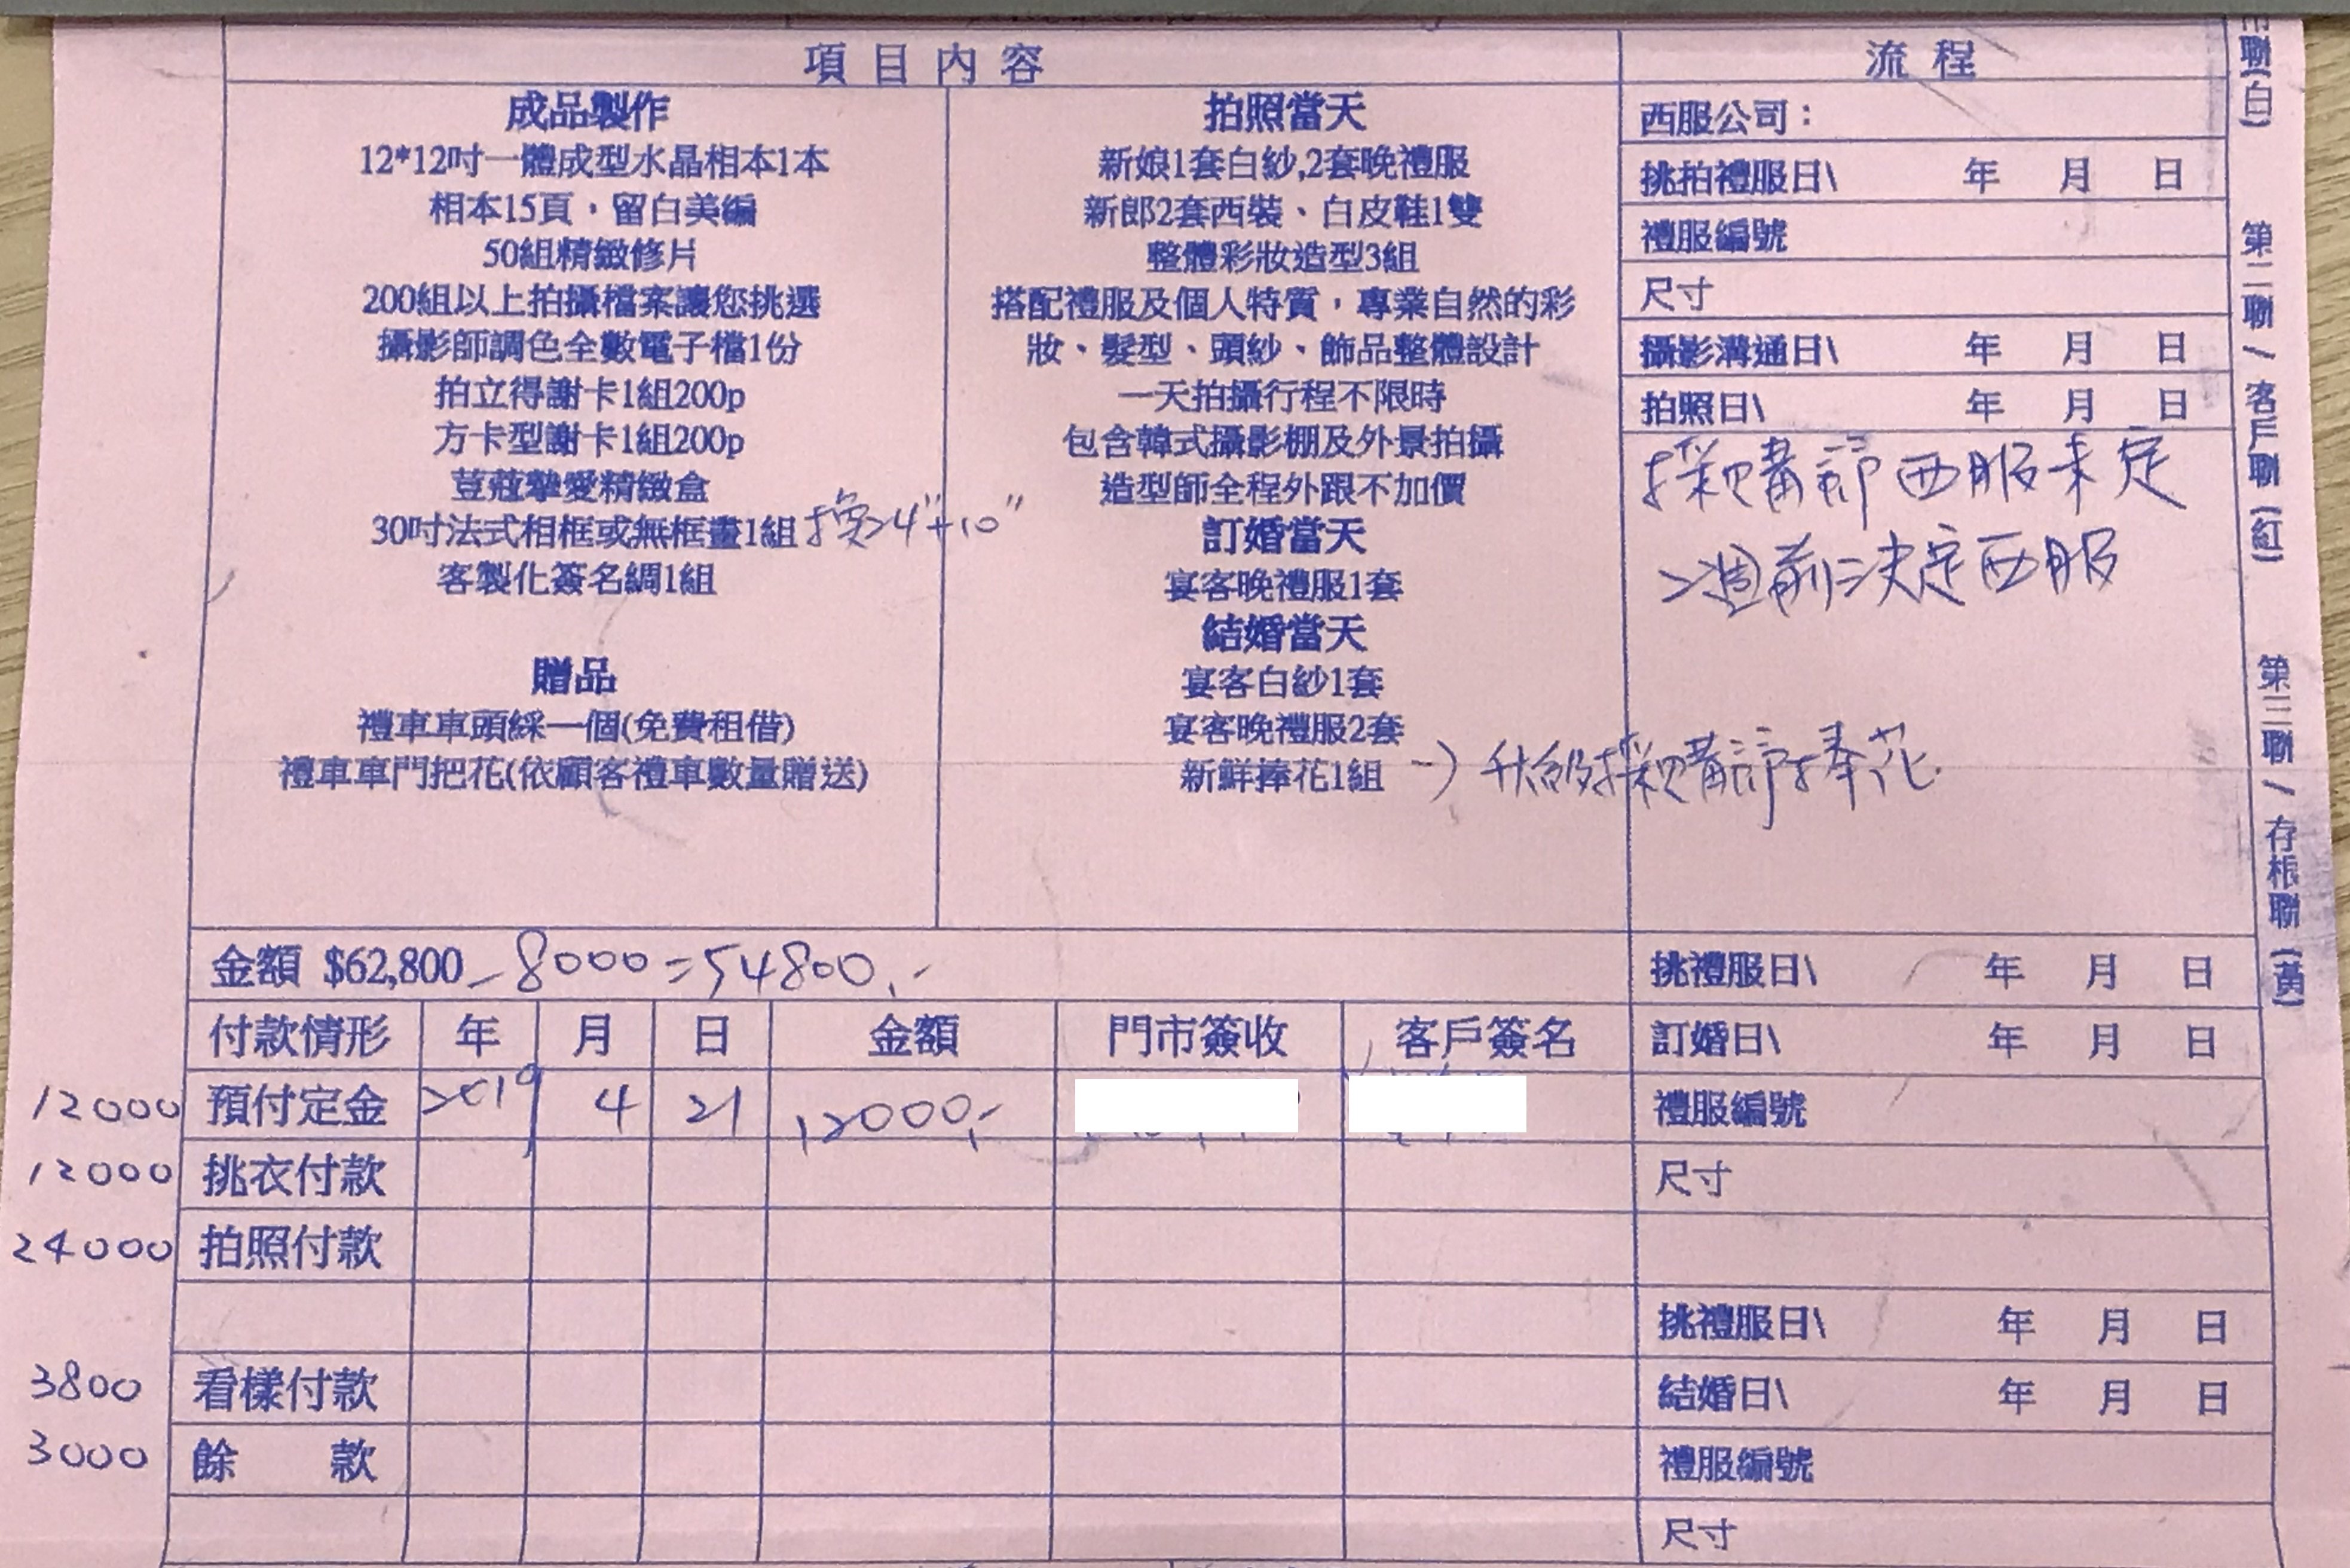 項目內容
流程
成品製作
12*12吋一體成型水晶相本1本
相本15頁，留白美編
50組精緻修片
200組以上拍攝檔案讓您挑選
攝影師調色全數電子檔1份
拍立得謝卡1組200p
方卡型謝卡1組200p
荳蔻摯愛精緻盒
30吋法式相框或無框畫1組 換24"+10"
客製化簽名綢1組
贈品
禮車車頭綵一個(免費租借)
禮車車門把花(依顧客禮車數量贈送)
拍照當天
新娘1套白紗,2套晚禮服
新郎2套西裝、白皮鞋1雙
整體彩妝造型3組
搭配禮服及個人特質，專業自然的彩
妝、髮型、頭紗、飾品整體設計
一天拍攝行程不限時
包含韓式攝影棚及外景拍攝
造型師全程外跟不加價
訂婚當天
宴客晚禮服1套
結婚當天
宴客白紗1套
宴客晚禮服2套
新鮮捧花1組 -) 升級採購節捧花.
西服公司：
挑拍禮服日\ 年 月 日
禮服編號
尺寸
攝影溝通日\ 年 月 日
拍照日\ 年 月 日
採購節西服未定
2週前決定西服
金額 $62,800 - 8000 = 54800.-
挑禮服日\ 年 月 日
付款情形 年 月 日 金額 門市簽收 客戶簽名
訂婚日\ 年 月 日
12000 預付定金 2019 4 21 12000.-
禮服編號
12000 挑衣付款
尺寸
24000 拍照付款
挑禮服日\ 年 月 日
3800 看樣付款
結婚日\ 年 月 日
3000 餘 款
禮服編號
尺寸
聯(白)
第二聯 / 客戶聯 (紅)
第三聯 / 存根聯 (黃)